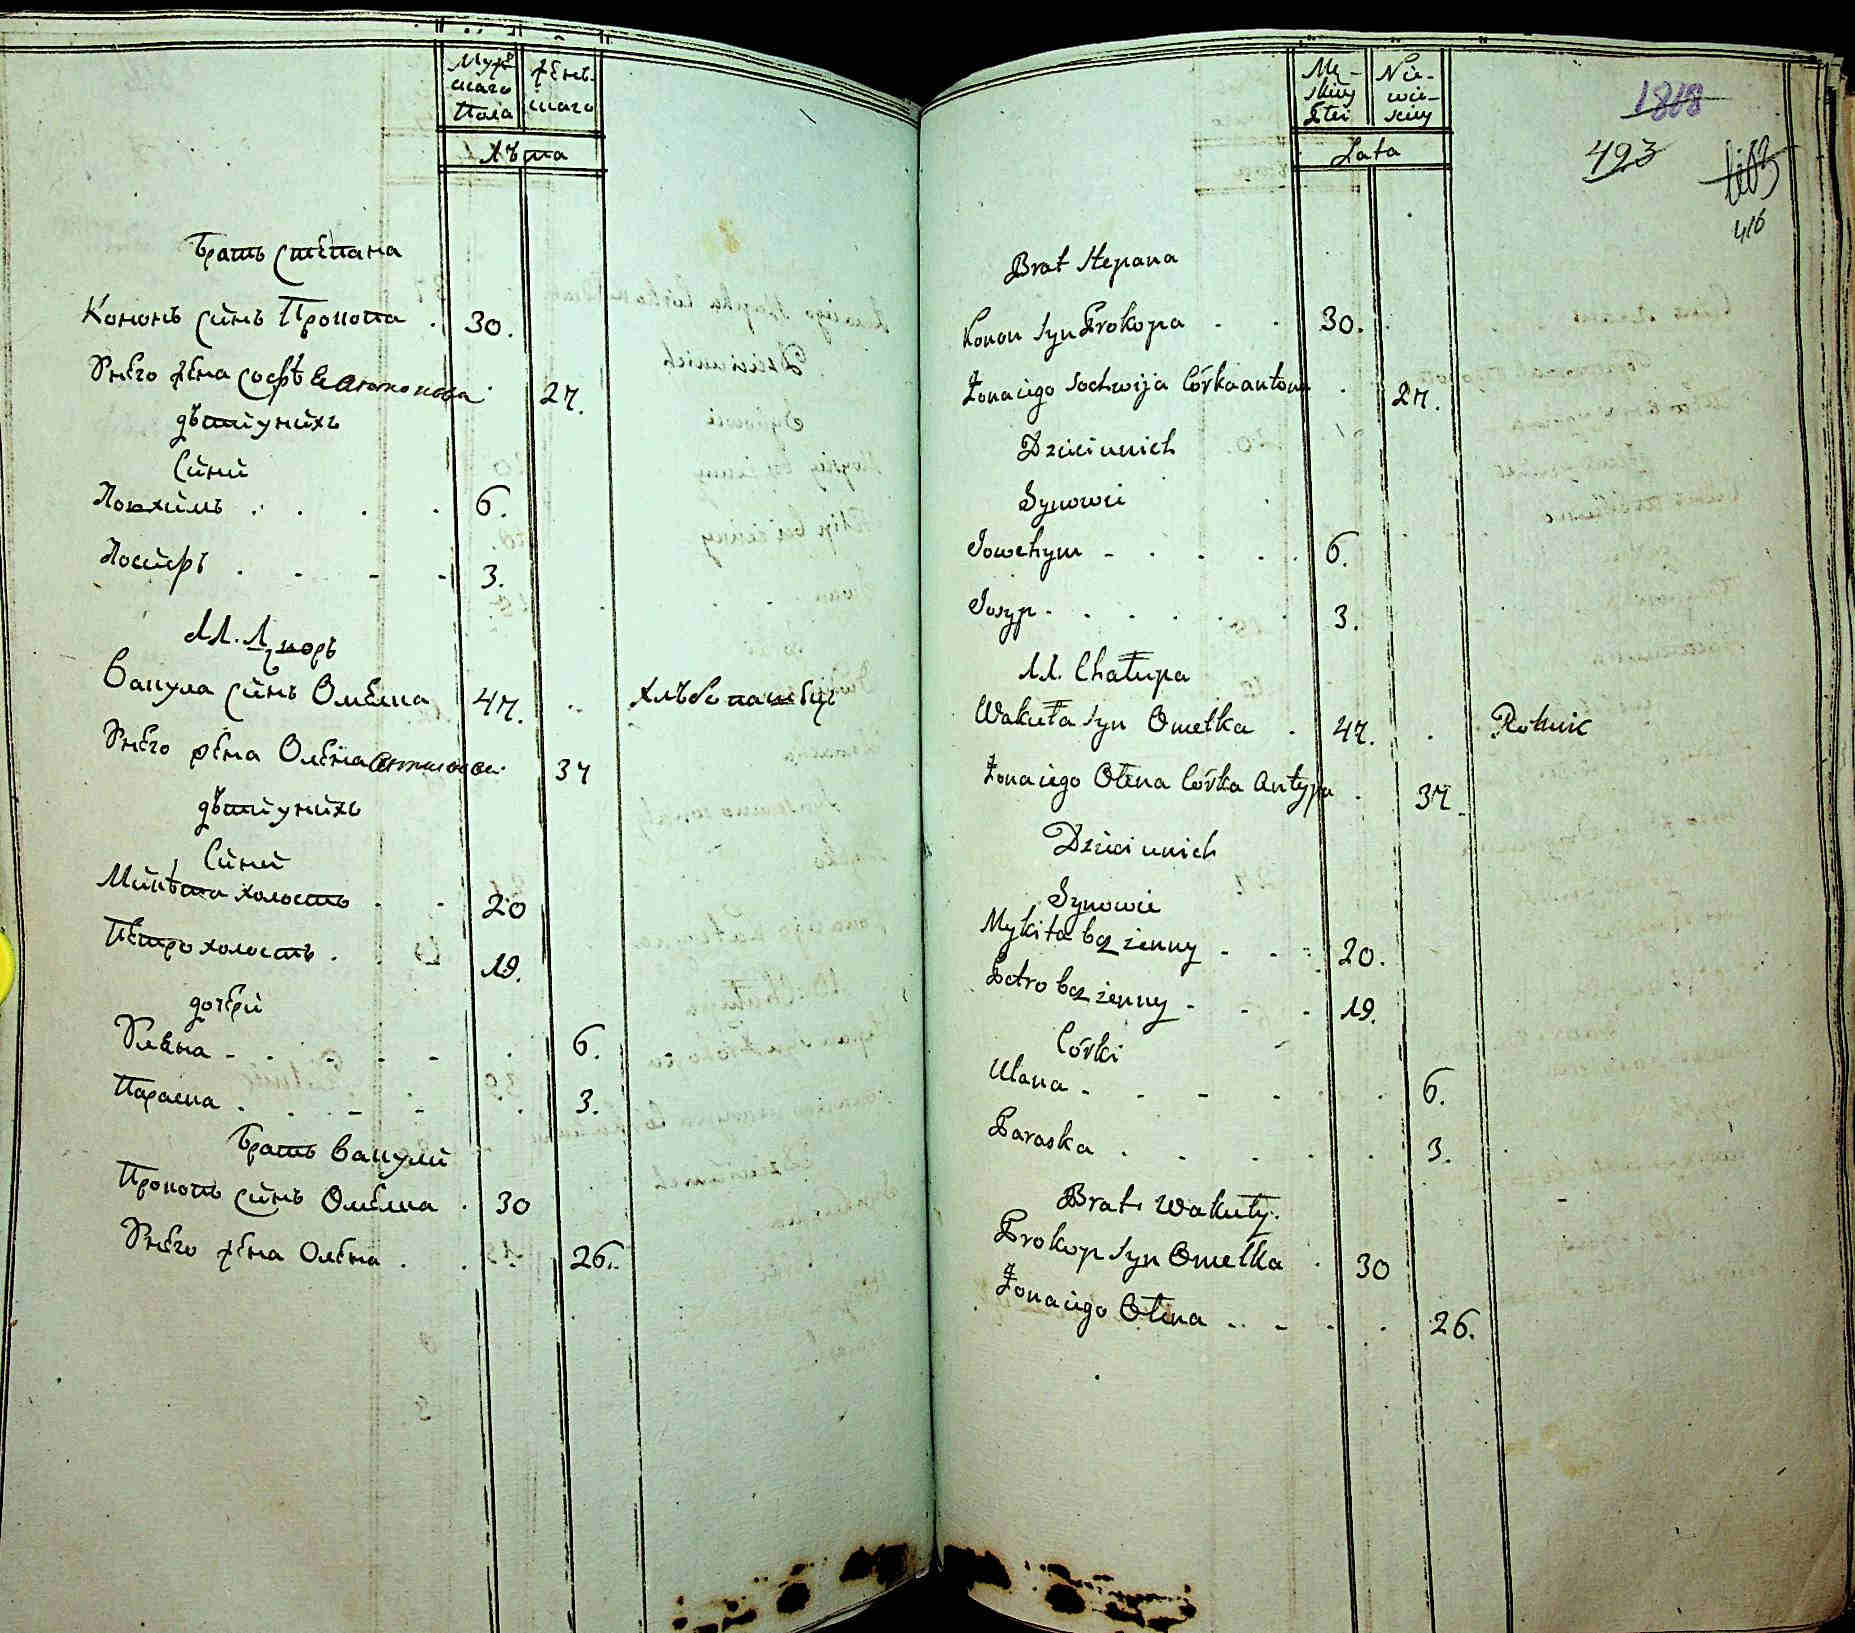 Муже
скаго
Пола
жень
скаго
Лѣта
Братъ Степана
Кононъ синъ Прокопа 30.
Унего жена Софѣя Антонова 27.
дѣти унихъ
Сини
Иовхимъ 6.
Иосифъ 3.
11. Дворъ
Вакула синъ Омелка 47. хлѣбопашецъ
Унего жена Олена Антипова 37
дѣти унихъ
Сини
Микѣта холостъ 20
Петро холостъ 19.
дочери
Уляна 6.
Параска 3.
Братъ Вакули
Прокопъ синъ Омелка 30
Унего жена Олена 26.
Mę-
skiey
Płci
Nie-
wie-
sciey
Lata
1818
493
416
Brat Stepana
Konon Syn Prokopa 30.
Żona iego Sochwija Córka Antona 27.
Dzieci unich
Synowie
Jowchym 6.
Josyp 3.
11. Chałupa
Wakuła Syn Omelka 47. Rolnik
Żona iego Ołena Córka Antypa 37.
Dzieci unich
Synowie
Mykita bez żenny 20.
Petro bez żenny 19.
Córki
Ulana 6.
Paraska 3.
Brat Wakuły.
Prokop Syn Omelka 30
Żona iego Ołena 26.